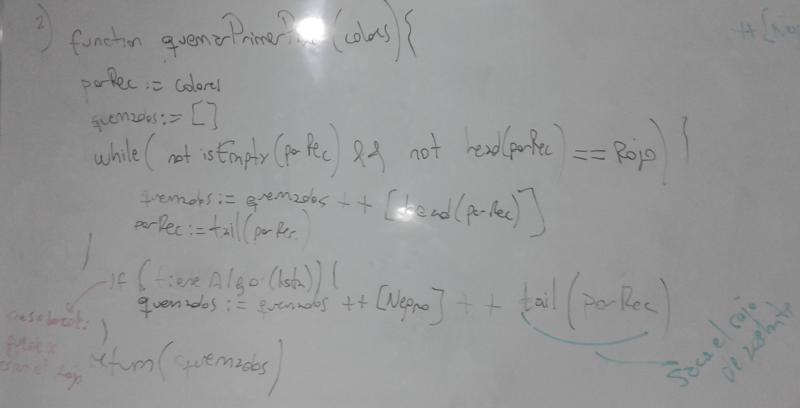 2) function quemarPrimer (colores) {
++ [Neg
porRec := colores
quemados := []
while( not isEmpty(porRec) && not head(porRec) == Rojo) {
quemados := quemados ++ [head(porRec)]
porRec := tail(porRec)
}
if (tieneAlgo(lista)) {
quemados := quemados ++ [Negro] ++ tail(porRec)
}
return(quemados)
Saca el rojo
de adelante